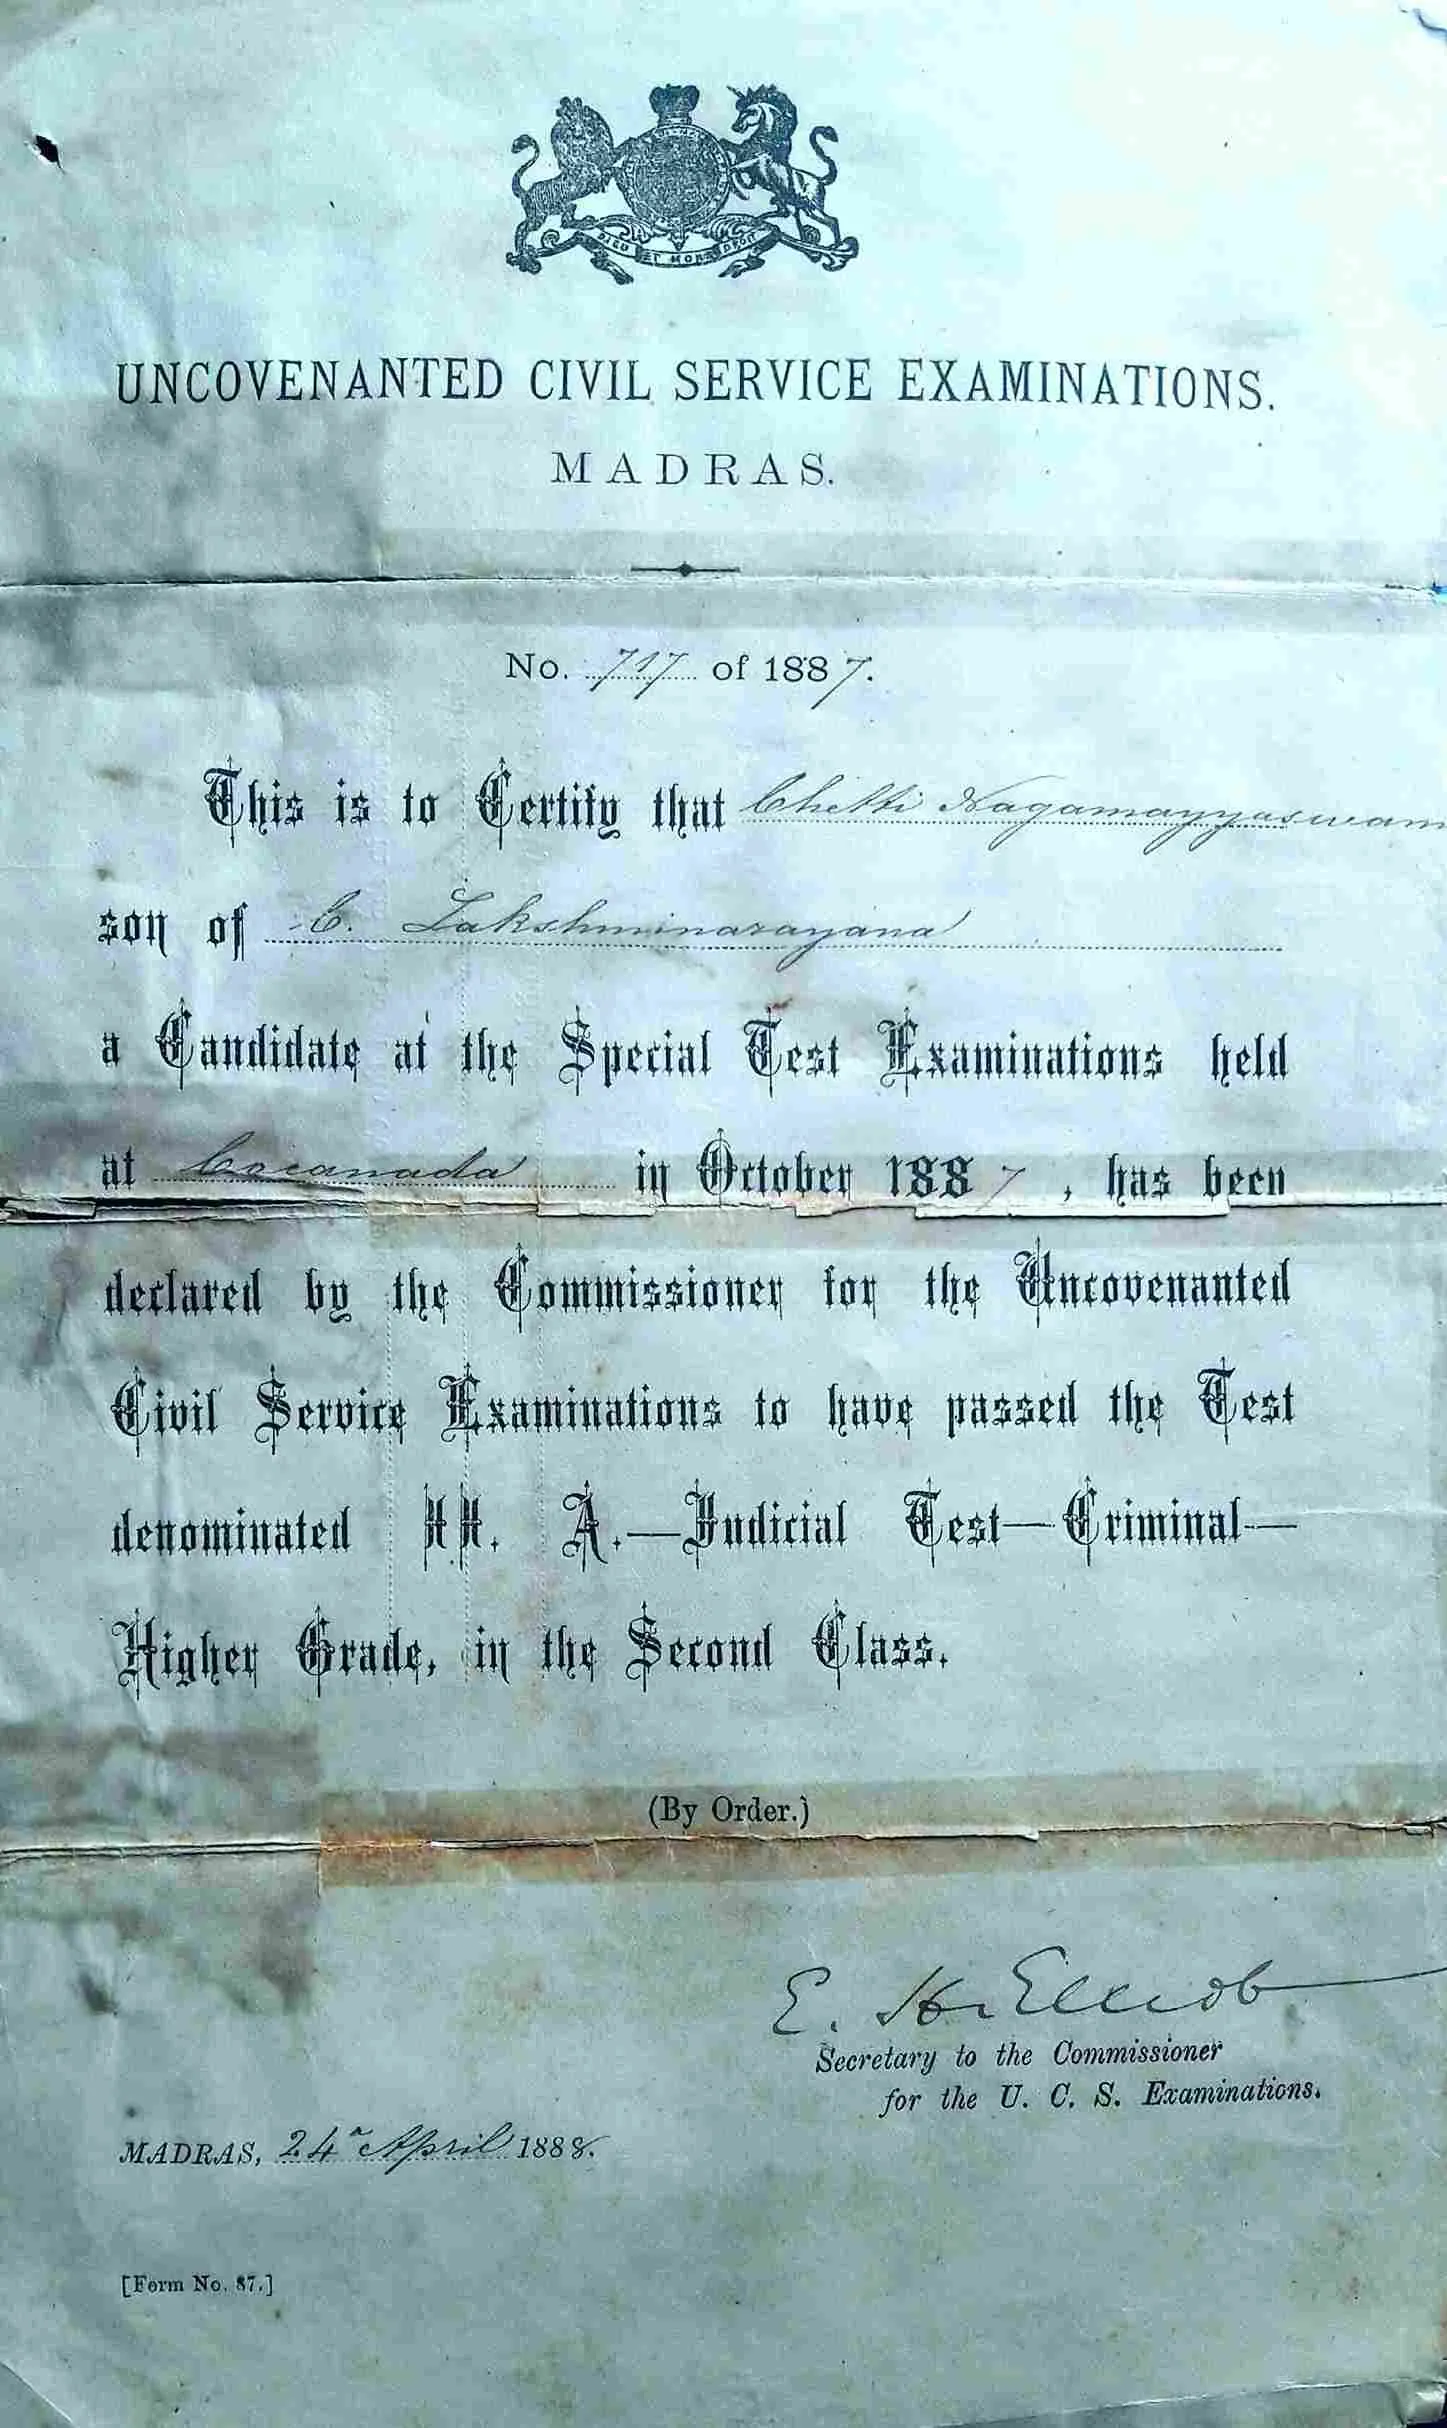 DIEU ET MON DROIT
UNCOVENANTED CIVIL SERVICE EXAMINATIONS.
MADRAS.
No. 717 of 1887.
This is to Certify that Chetti Nagamayyaswam
son of C. Lakshminarayana
a Candidate at the Special Test Examinations held
at Cocanada in October 1887, has been
declared by the Commissioner for the Uncovenanted
Civil Service Examinations to have passed the Test
denominated II. A.—Judicial Test—Criminal—
Higher Grade, in the Second Class.
(By Order.)
E. H. Elliot
Secretary to the Commissioner
for the U. C. S. Examinations.
MADRAS, 24th April 1888.
[Form No. 87.]